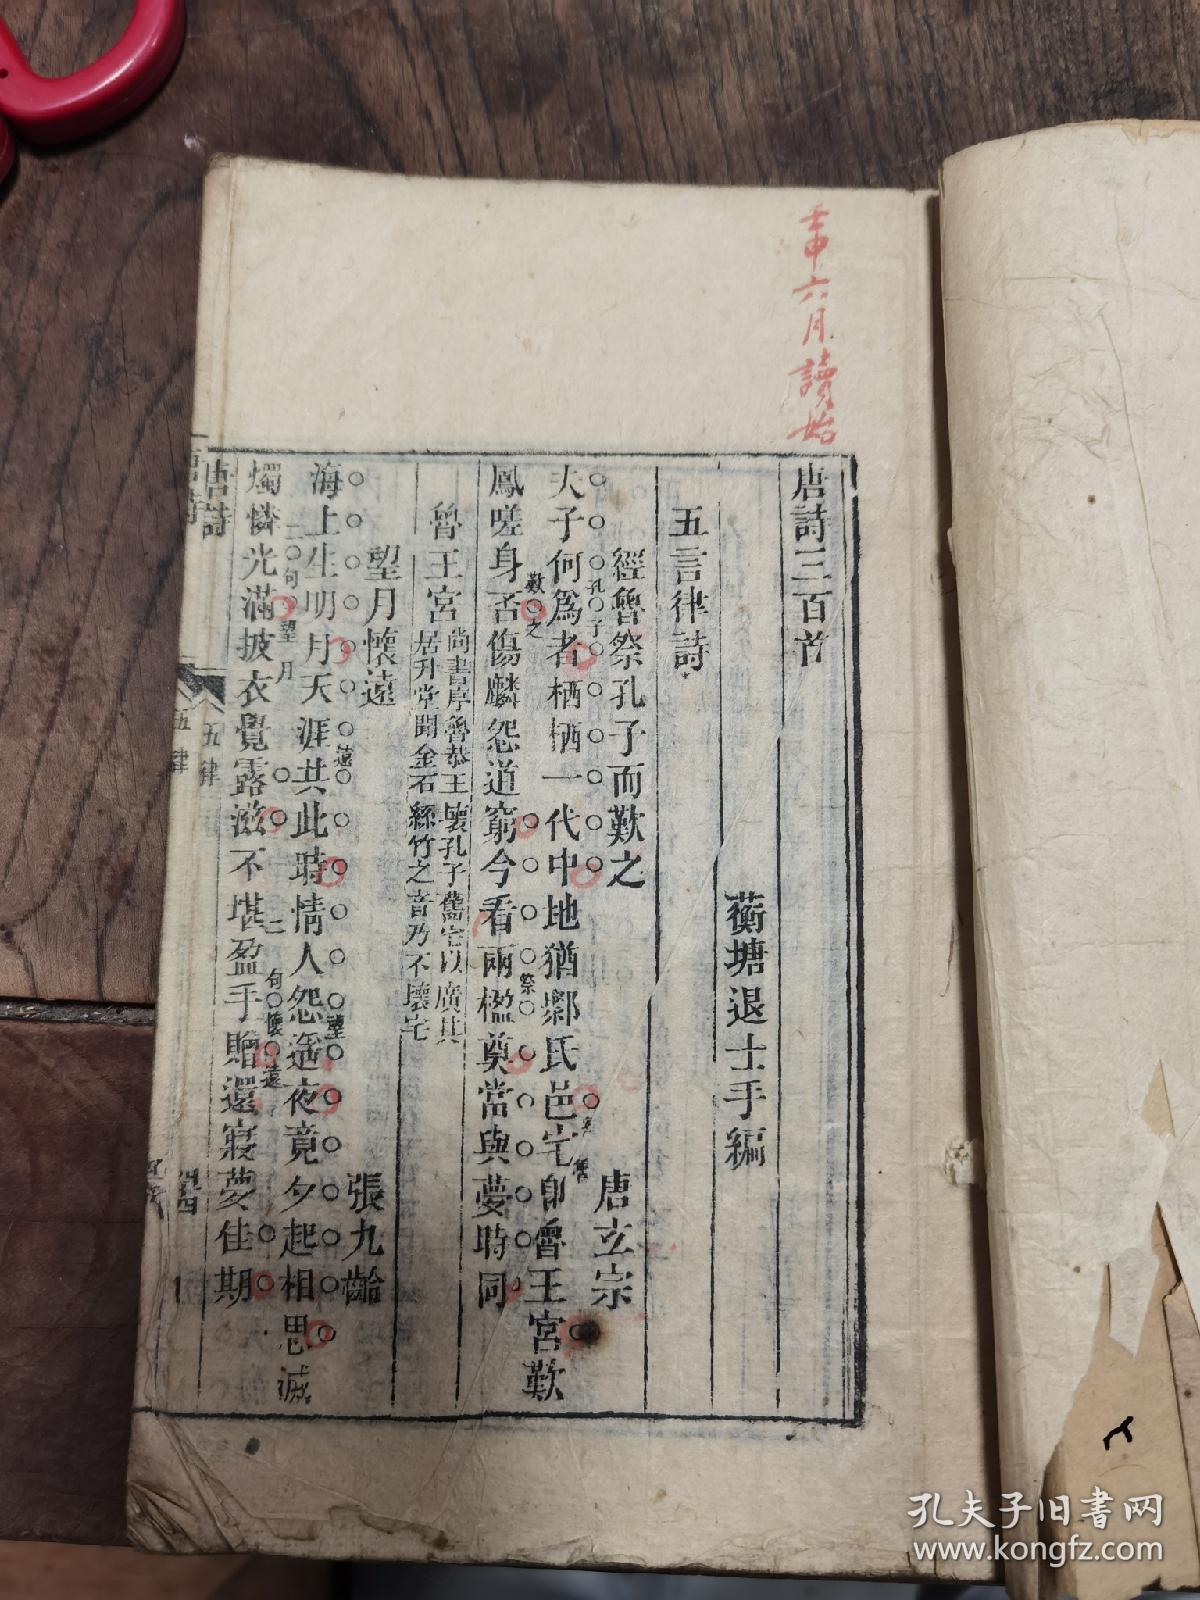 壬申六月讀始
唐詩三百首
蘅塘退士手編
五言律詩
經魯祭孔子而歎之
唐玄宗
夫子何爲者栖栖一代中地猶鄹氏邑宅卽魯王宮歎
鳳嗟身否傷麟怨道窮今看兩楹奠當與夢時同
魯王宮
尚書序魯恭王壞孔子舊宅以廣其
居升堂聞金石絲竹之音乃不壞宅
望月懷遠
張九齡
海上生明月天涯共此時情人怨遙夜竟夕起相思滅
燭憐光滿披衣覺露滋不堪盈手贈還寢夢佳期
唐詩
五律
孔夫子旧书网
www.kongfz.com